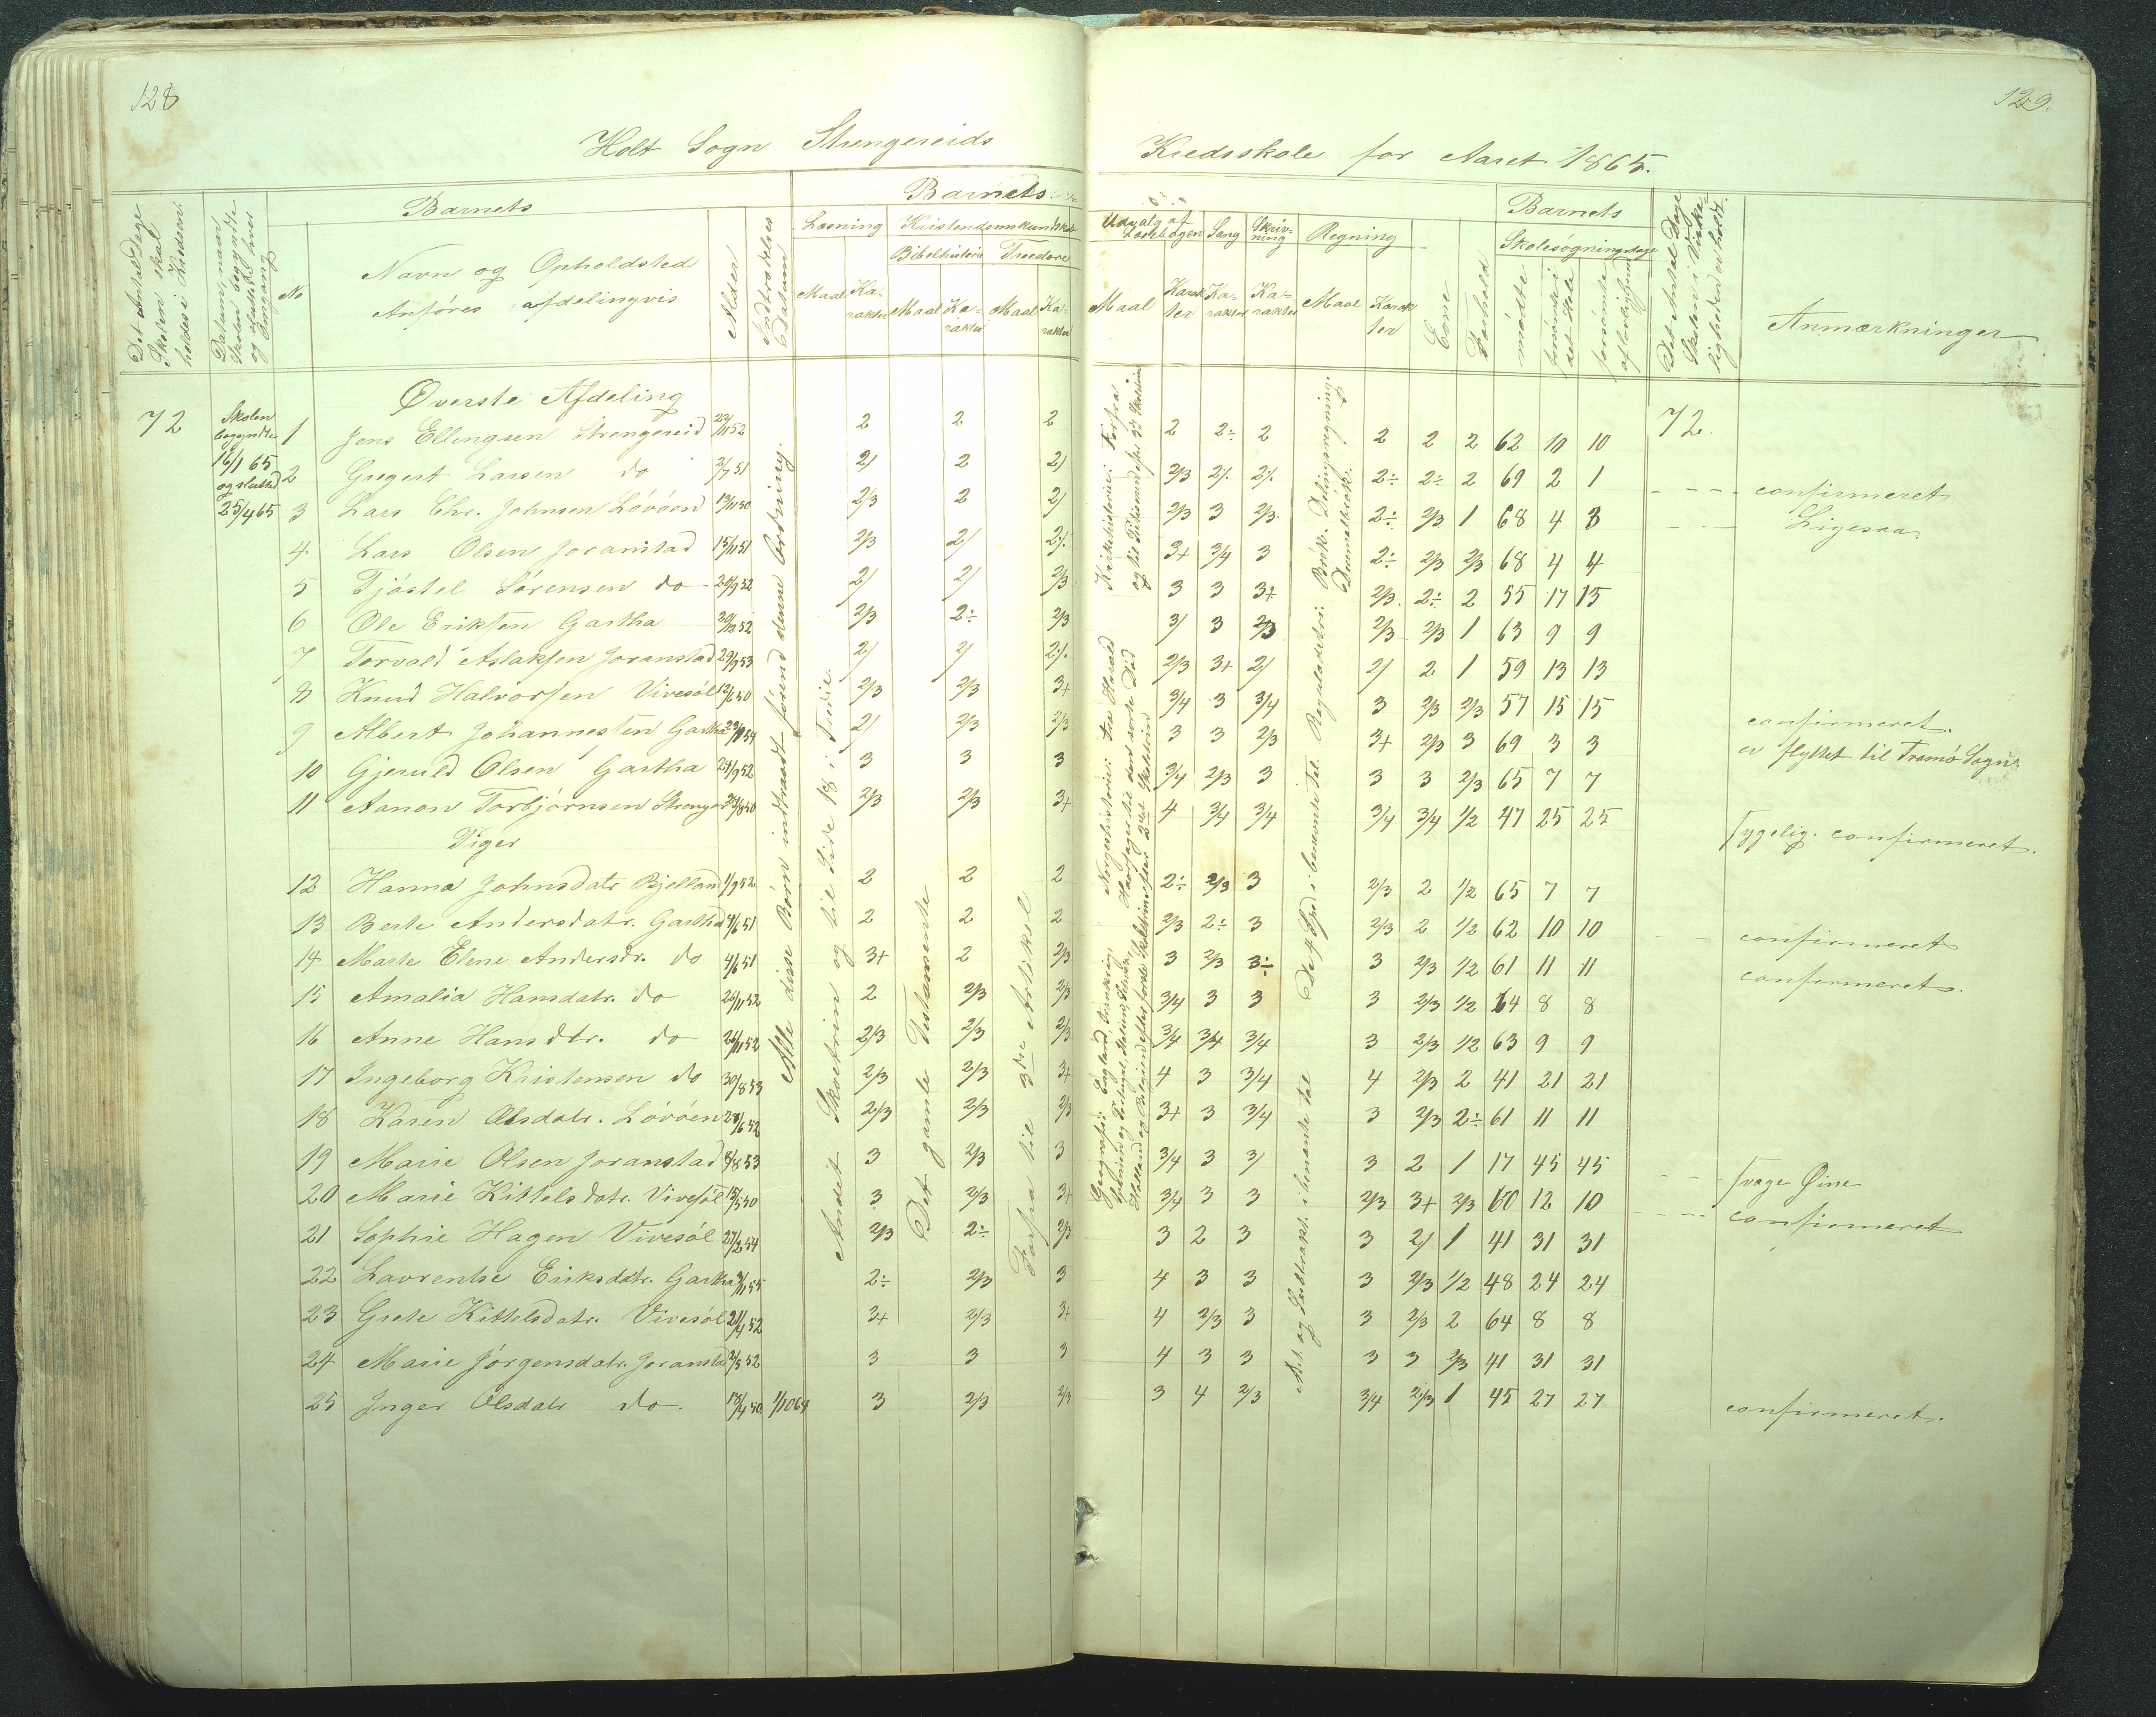 128
129.
Holt Sogn Strengereids Kredsskole for Aaret 1865.
Det Antal Dage Skolen skal holdes i Kredsen.
Datum, naar Skolen begyndte og sluttede hver Omgang
No
Barnets
Navn og Opholdsted
Anföres afdelingvis
Alder
Indtrædelses Datum
Barnets
Læsning
Kristendomskundskab
Bibelhistorie
Troeslære
Maal
Karakter
Maal
Karakter
Maal
Karakter
Udvalg af Læsebogen
Sang
Skrivning
Regning
Maal
Karakter
Karakter
Karakter
Maal
Karakter
Evne
Forhold
Barnets
Skolesøgningsdage
mødte
forsömte i det Hele
forsömte af lovlig
Det Antal Dage Skolen i Virkeligheden er holdt.
Anmærkninger
Øverste Afdeling
72
Skolen begyndte 16/1 65 og slutted 25/4 65
1 Jens Ellingsen Strengereid 22/11 52 2 2 2 2 2÷ 2 2 2 2 62 10 10 72.
2 Gregert Larsen do 2/7 51 2/ 2 2/ 2/3 2/. 2/. 2÷ 2÷ 2 69 2 1 confirmeret
3 Lars Chr. Johnsen Lövöen 13/11 50 2/3 2 2/ 2/3 3 2/3 2÷ 2/3 1 68 4 3 Ligesaa
4 Lars Olsen Joranstad 15/11 51 2/3 2/ 2/. 3+ 3/4 3 2÷ 2/3 2/3 68 4 4
5 Tjöstel Sörensen do 20/9 52 2/ 2/ 2/3 3 3 3+ 2/3 2÷ 2 55 17 15
6 Ole Eriksen Gartha 20/3 52 2/3 2÷ 2/3 3/ 3 2/3 2/3 2/3 1 63 9 9
7 Torvald Aslaksen Joranstad 29/9 53 2/ 2/ 2/. 2/3 3+ 2/ 2/ 2 1 59 13 13
8 Knud Halvorsen Vivesöl 12/6 50 2/3 2/3 3+ 3/4 3 3/4 3 2/3 2/3 57 15 15 confirmeret.
9 Albert Johannessen Gartha 54 2/ 2/3 2/3 3 3 2/3 3+ 2/3 3 69 3 3 er flyttet til Tromö Sogn
10 Gjeruld Olsen Gartha 24/9 52 3 3 3 3/4 2/3 3 3 3 2/3 65 7 7
11 Aanon Torbjörnsen Strenger 50 2/3 2/3 3+ 4 3/4 3/4 3/4 3/4 1/2 47 25 25 sygelig. confirmeret.
Piger
12 Hanna Johnsdatr Bjelland 1/9 52 2 2 2 2÷ 2/3 3 2/3 2 1/2 65 7 7
13 Berte Andersdatr. Gartha 4/6 51 2 2 2 2/3 2÷ 3 2/3 2 1/2 62 10 10 confirmeret
14 Marte Elene Andersdr. do 4/6 51 3+ 2 2/3 3 2/3 3÷ 3 2/3 1/2 61 11 11 confirmeret.
15 Amalia Hansdatr. do 26/11 52 2 2/3 2/3 3/4 3 3 3 2/3 1/2 64 8 8
16 Anne Hansdtr. do 26/11 52 2/3 2/3 2/3 3/4 3/4 3/4 3 2/3 1/2 63 9 9
17 Ingeborg Kristensen do 30/8 53 2/3 2/3 3+ 4 3 3/4 4 2/3 2 41 21 21
18 Karen Olsdatr. Lövöen 28/6 52 2/3 2/3 2/3 3+ 3 3/4 3 2/3 2÷ 61 11 11
19 Marie Olsen Joranstad 8/8 53 3 2/3 3 3/4 3 3/ 3 2 1 17 45 45 svage Øine
20 Marie Kittelsdatr. Vivesöl 15/5 50 3 2/3 3+ 3/4 3 3 2/3 3+ 2/3 60 12 10 confirmeret
21 Sophie Hagen Vivesöl 27/2 54 2/3 2÷ 2/3 3 2 3 3 2/ 1 41 31 31
22 Lavrentse Eriksdatr. Gartha 55 2÷ 2/3 3 4 3 3 3 2/3 1/2 48 24 24
23 Grete Kittelsdatr. Vivesöl 21/4 52 3+ 2/3 3+ 4 2/3 3 3 2/3 2 64 8 8
24 Marie Jörgensdatr. Joranstad 2/5 52 3 3 3 4 3 3 3 3 2/3 41 31 31
25 Inger Olsdatr do. 13/4 50 1/10 64 3 2/3 2/3 3 4 2/3 3/4 2/3 1 45 27 27 confirmeret.
Alle disse Børn indtraadt förend denne Ordning.
Andet Skoletrin og til Side 18 i Tredie
Det gamle Testamente
Forfra til 3die Artikel
Kirkehistorie: Forfra og til
Norgeshistorie: fra Harald Haarfager til den sorte Död
Geografi: England, Frankrig, Spanien og Portugal, Italien, Holland og Belgien efter første Skoletrin
Reguladetri: Brök. Delingsregning. Decimalbrök.
De 4 Spd i benevnte Tal.
Add. og Subtrakt. i benevnte tal